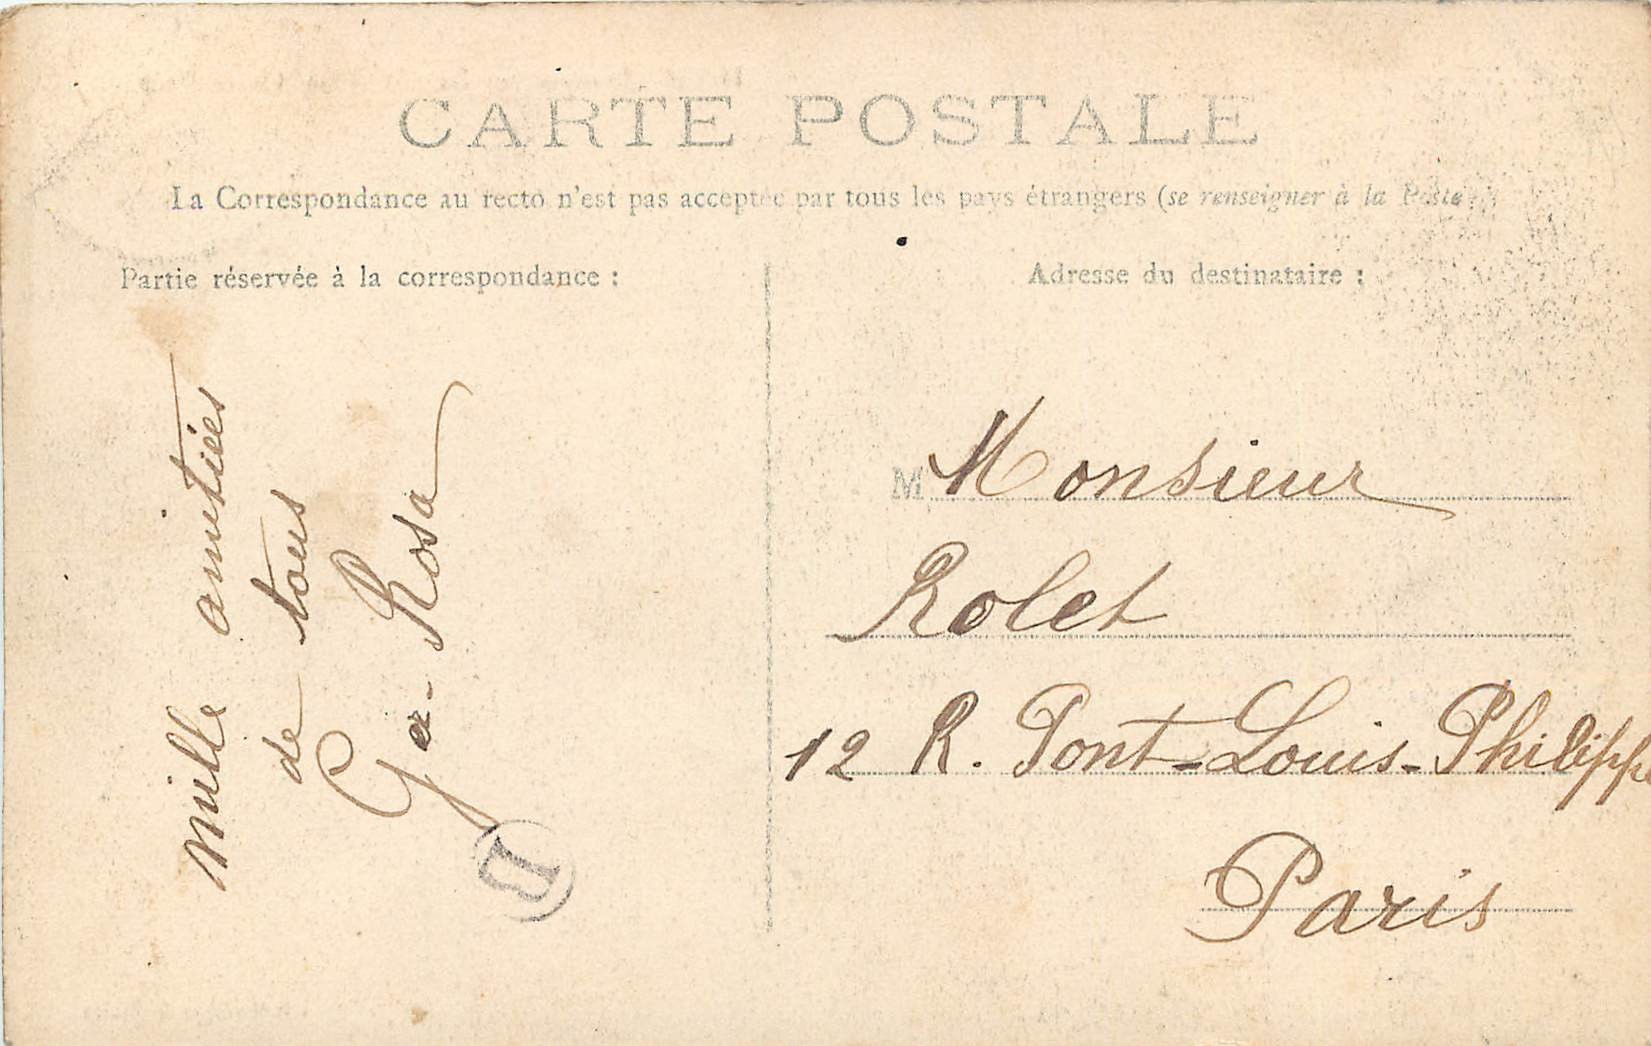 CARTE POSTALE
La Correspondance au recto n'est pas acceptée par tous les pays étrangers (se renseigner à la Poste)
Partie réservée à la correspondance :
Mille amitiées
de tous
Rosa
D
Adresse du destinataire :
M Monsieur
Rolet
12 R. Pont-Louis-Philippe
Paris